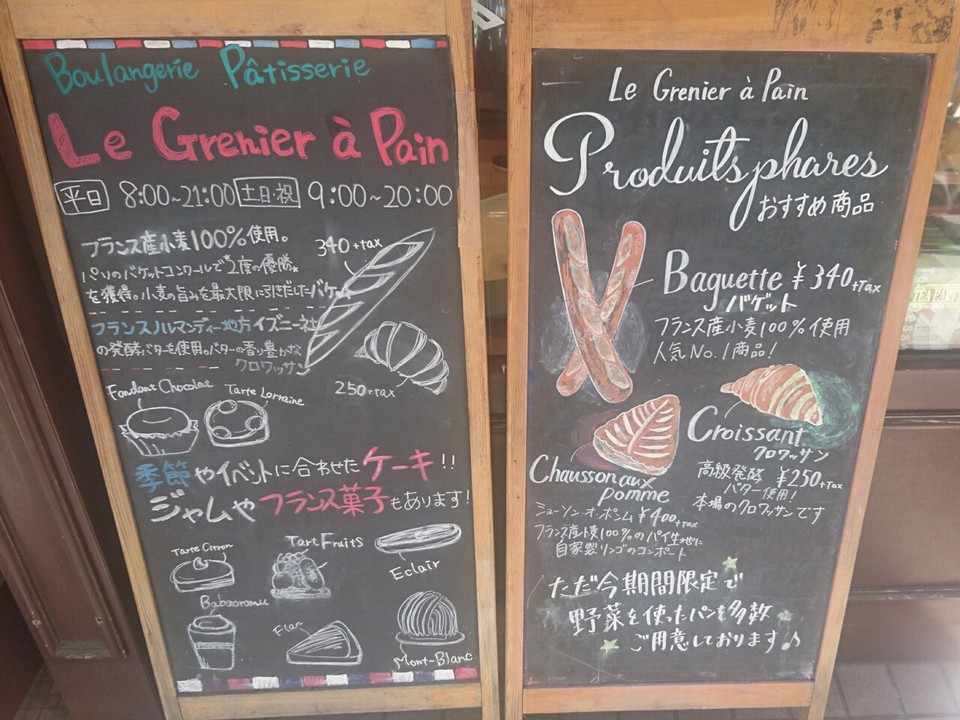 Boulangerie Pâtisserie
Le Grenier à Pain
平日 8:00~21:00 土日・祝 9:00~20:00
フランス産小麦100%使用。
340+tax
パリのバゲットコンクールで"2度の優勝"
を獲得。小麦の旨みを最大限に引きだしたバゲット
フランスノルマンディー地方イズニー社
の発酵バターを使用。バターの香り豊かな
クロワッサン
250+tax
Fondant Chocolat
Tarte Lorraine
季節やイベントに合わせたケーキ!!
ジャムやフランス菓子もあります!
Tarte Citron
Tart Fruits
Eclair
Babaoromu
Flan
Mont-Blanc
Le Grenier à Pain
Produits phares
おすすめ商品
Baguette ¥340+tax
バゲット
フランス産小麦100%使用
人気No.1商品!
Croissant
クロワッサン
高級発酵 ¥250+tax
バター使用!
本場のクロワッサンです
Chausson aux
pomme
ショーソン・オ・ポンム ¥400+tax
フランス産小麦100%のパイ生地に
自家製リンゴのコンポート
ただ今期間限定で
野菜を使ったパンを多数
ご用意しております♪